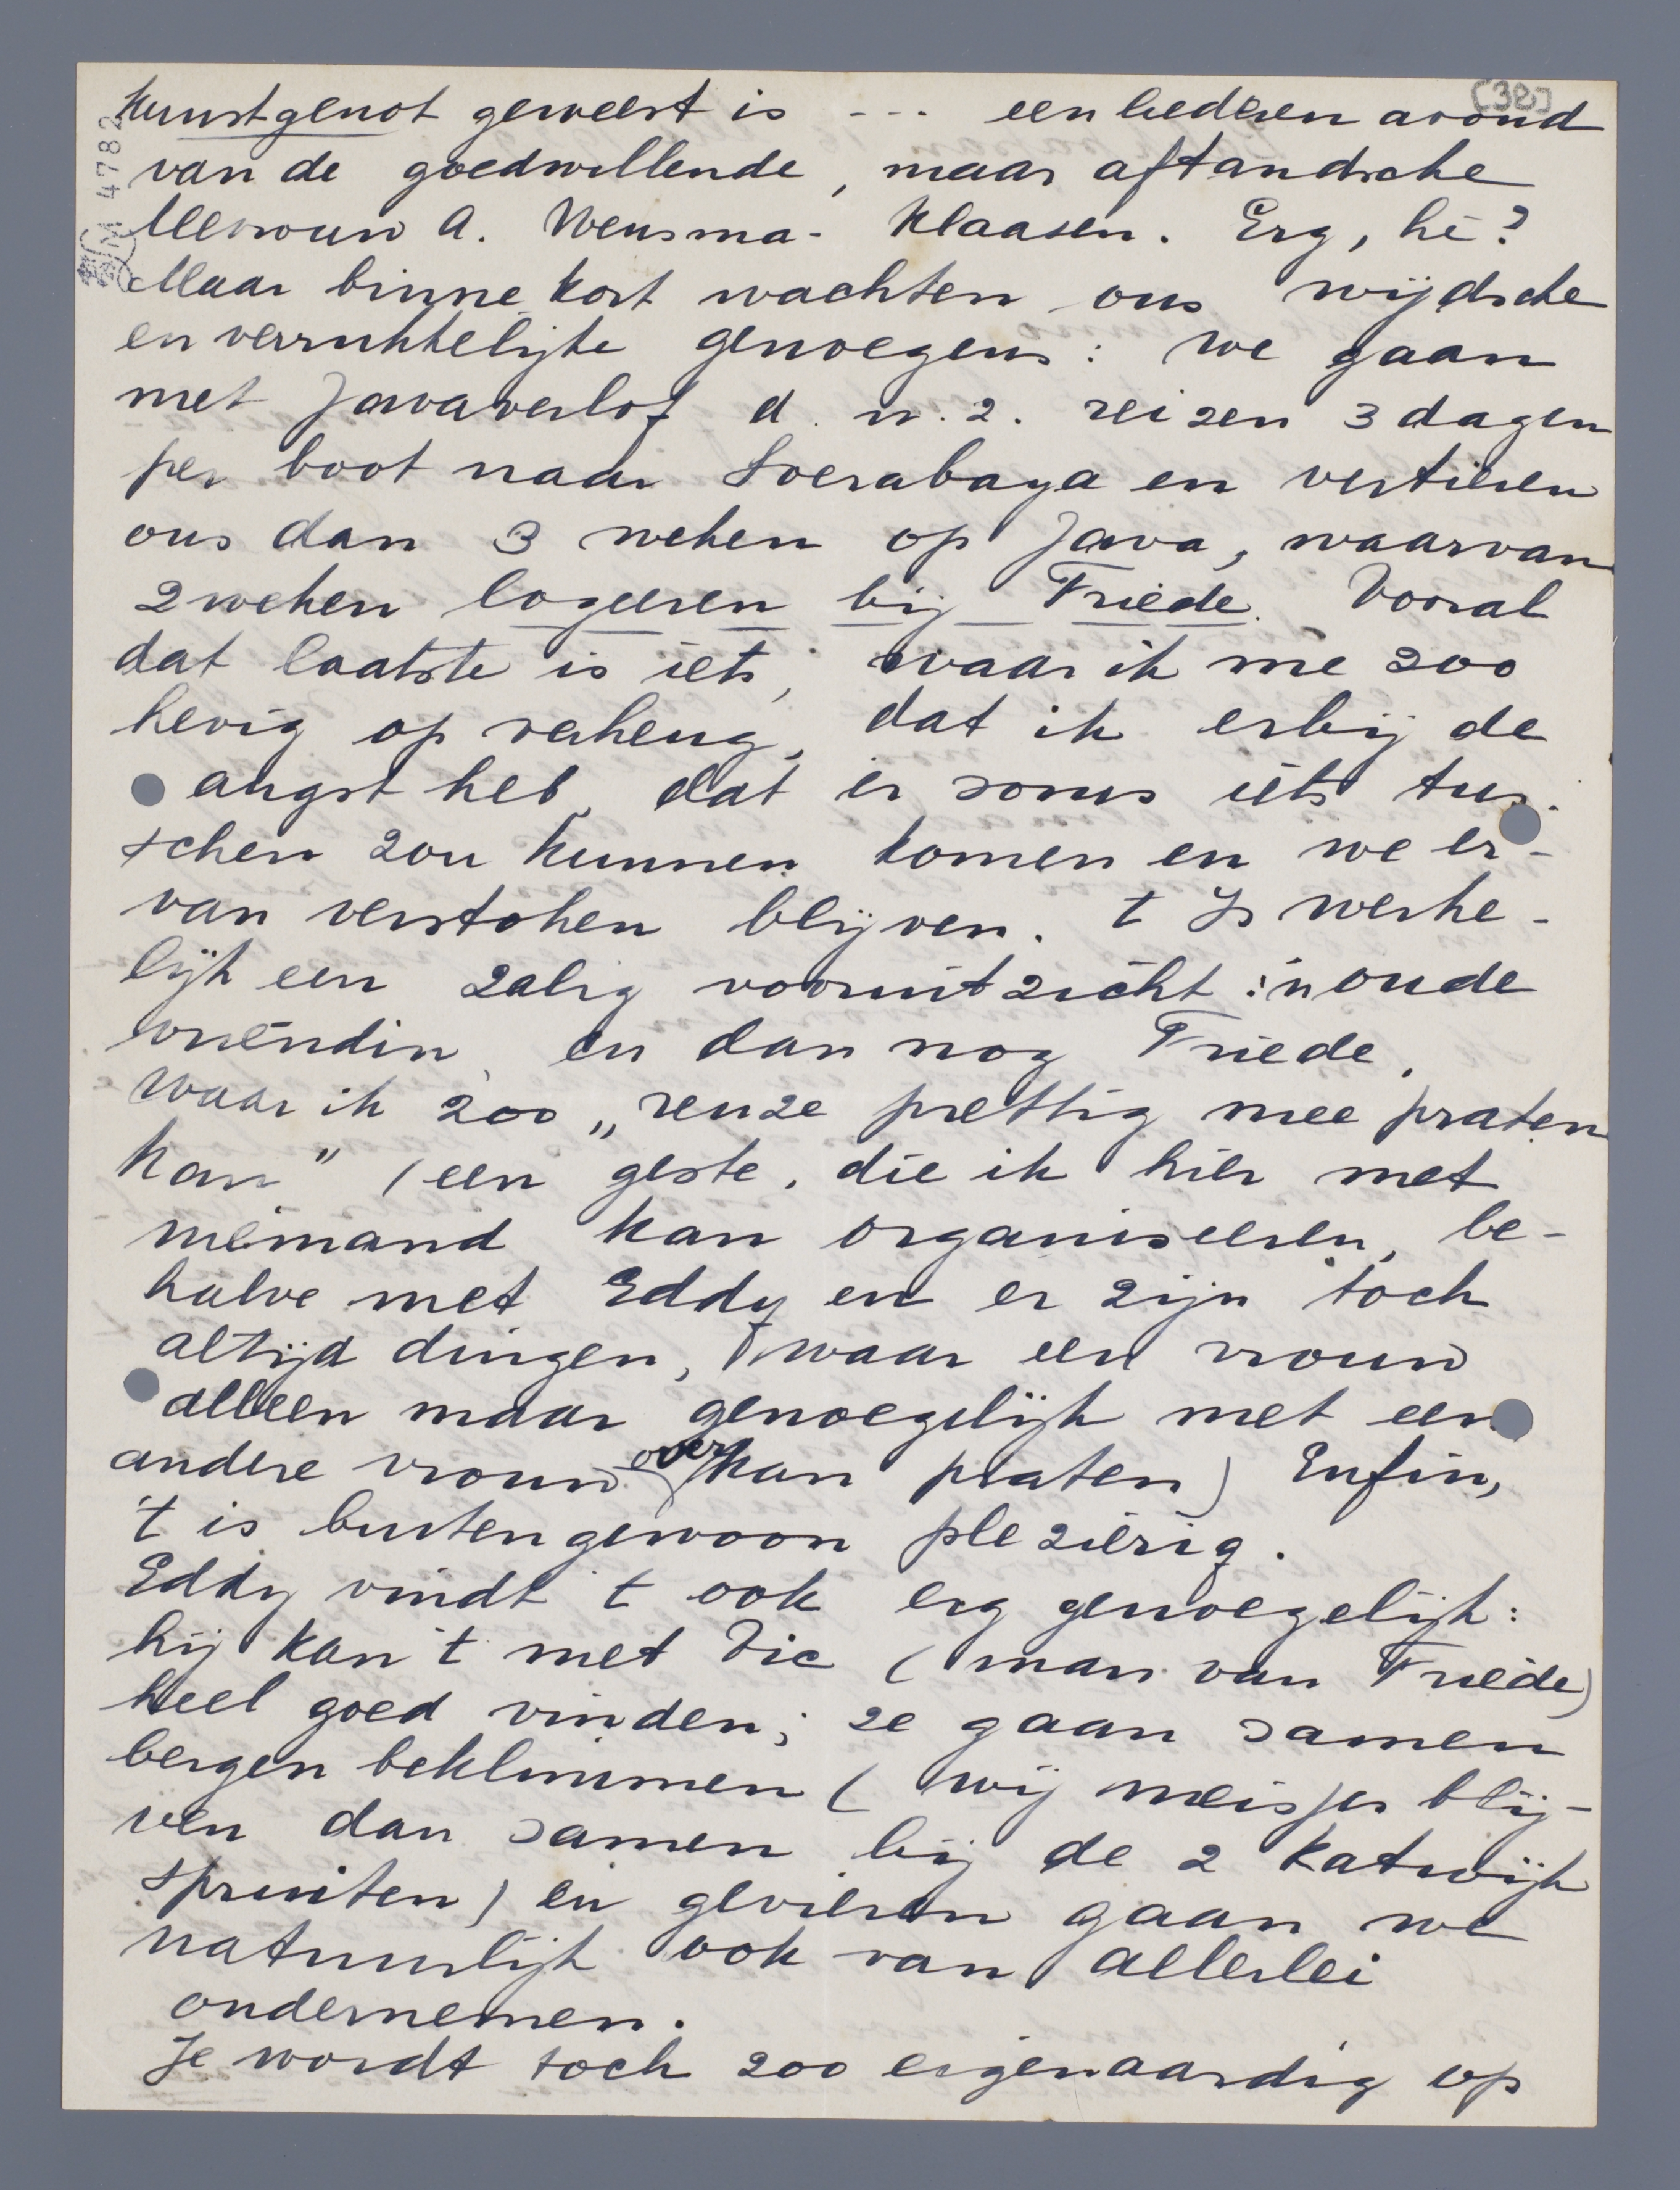 [38]
4782
kunstgenot geweest is --- een liederen avond
van de goedwillende, maar aftandsche
Mevrouw A. Wensma-Klaasen. Erg, hè?
Maar binne kort wachten ons wijdsche
en verrukkelijke genoegens: we gaan
met Javaverlof d.w.z. reizen 3 dagen
per boot naar Soerabaya en vertieren
ons dan 3 weken op Java, waarvan
2 weken logeeren bij Friede. Vooral
dat laatste is iets, waar ik me zoo
hevig op verheug, dat ik erbij de
angst heb, dat er soms iets tus-
schen zou kunnen komen en we er-
van verstoken blijven. t Is werke-
lijk een zalig vooruitzicht: 'n oude
vriendin, en dan nog Friede,
waar ik zoo „reuze prettig mee praten
kan" (een geste, die ik hier met
niemand kan organiseeren, be-
halve met Eddy en er zijn toch
altijd dingen, waar een vrouw
alleen maar genoegelijk met een
andere vrouw over kan praten) Enfin,
't is buitengewoon plezierig.
Eddy vindt 't ook erg genoegelijk:
hij kan 't met Vic (man van Friede)
heel goed vinden; ze gaan samen
bergen beklimmen (wij meisjes blij-
ven dan samen bij de 2 Katwijk
spruiten) en gevieren gaan we
natuurlijk ook van allerlei
ondernemen.
Je wordt toch zoo eigenaardig op